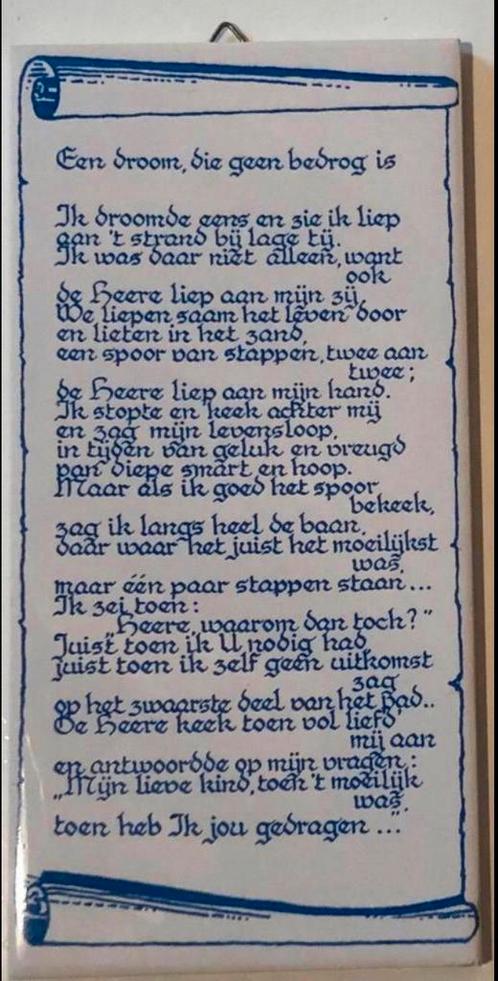 Een droom, die geen bedrog is
Ik droomde eens en zie ik liep
aan 't strand bij lage tij.
Ik was daar niet alleen, want
ook
de Heere liep aan mijn zij.
We liepen saam het leven door
en lieten in het zand,
een spoor van stappen, twee aan
twee;
de Heere liep aan mijn hand.
Ik stopte en keek achter mij
en zag mijn levensloop,
in tijden van geluk en vreugd
van diepe smart en hoop.
Maar als ik goed het spoor
bekeek,
zag ik langs heel de baan,
daar waar het juist het moeilijkst
was,
maar één paar stappen staan...
Ik zei toen:
„Heere, waarom dan toch?"
Juist toen ik U nodig had,
juist toen ik zelf geen uitkomst
zag
op het zwaarste deel van het pad..
De Heere keek toen vol liefd'
mij aan
en antwoordde op mijn vragen:
„Mijn lieve kind, toen 't moeilijk
was,
toen heb Ik jou gedragen..."